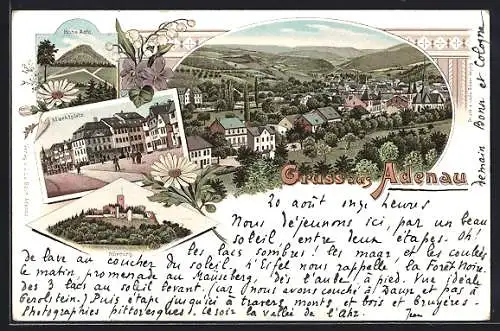 Hohe Acht
Marktplatz
Nürburg
Gruss aus Adenau
20 août onze heures
Nous déjeunons ici, par un beau
soleil, entre deux étapes. Oh!
les lacs sombres! les maars et les coulées
de lave au coucher du soleil. L'Eifel nous rappelle la Forêt Noire.
le matin, promenade au Mauseberg. Dès l'aube, à pied. Vue idéale
des 3 lacs au soleil levant. (car nous avons couché à Daun et pas à
Gerolstein.) Puis étape jusqu'ici à travers monts et bois et bruyères.
Photographies pittoresques. Ce soir la vallée de l'Ahr.
demain Bonn et Cologne